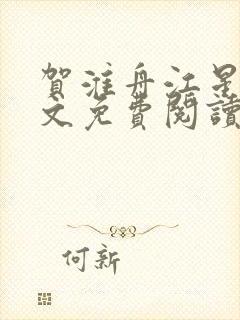 賀淮舟江星
文免費閱讀
何新